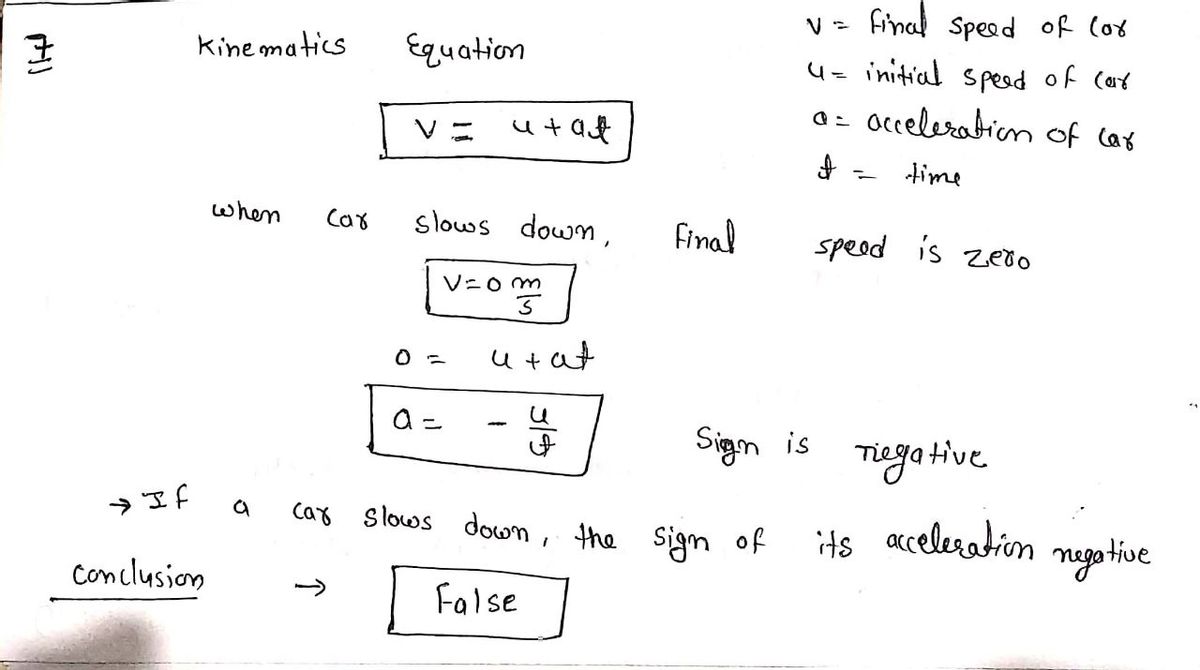 7
Kinematics Equation
v = final speed of car
u = initial speed of car
a = acceleration of car
t = time
v = u + at
when car slows down, final speed is zero
v = 0 m/s
0 = u + at
a = - u/t
Sign is negative
→ If a car slows down, the sign of its acceleration negative
conclusion → False